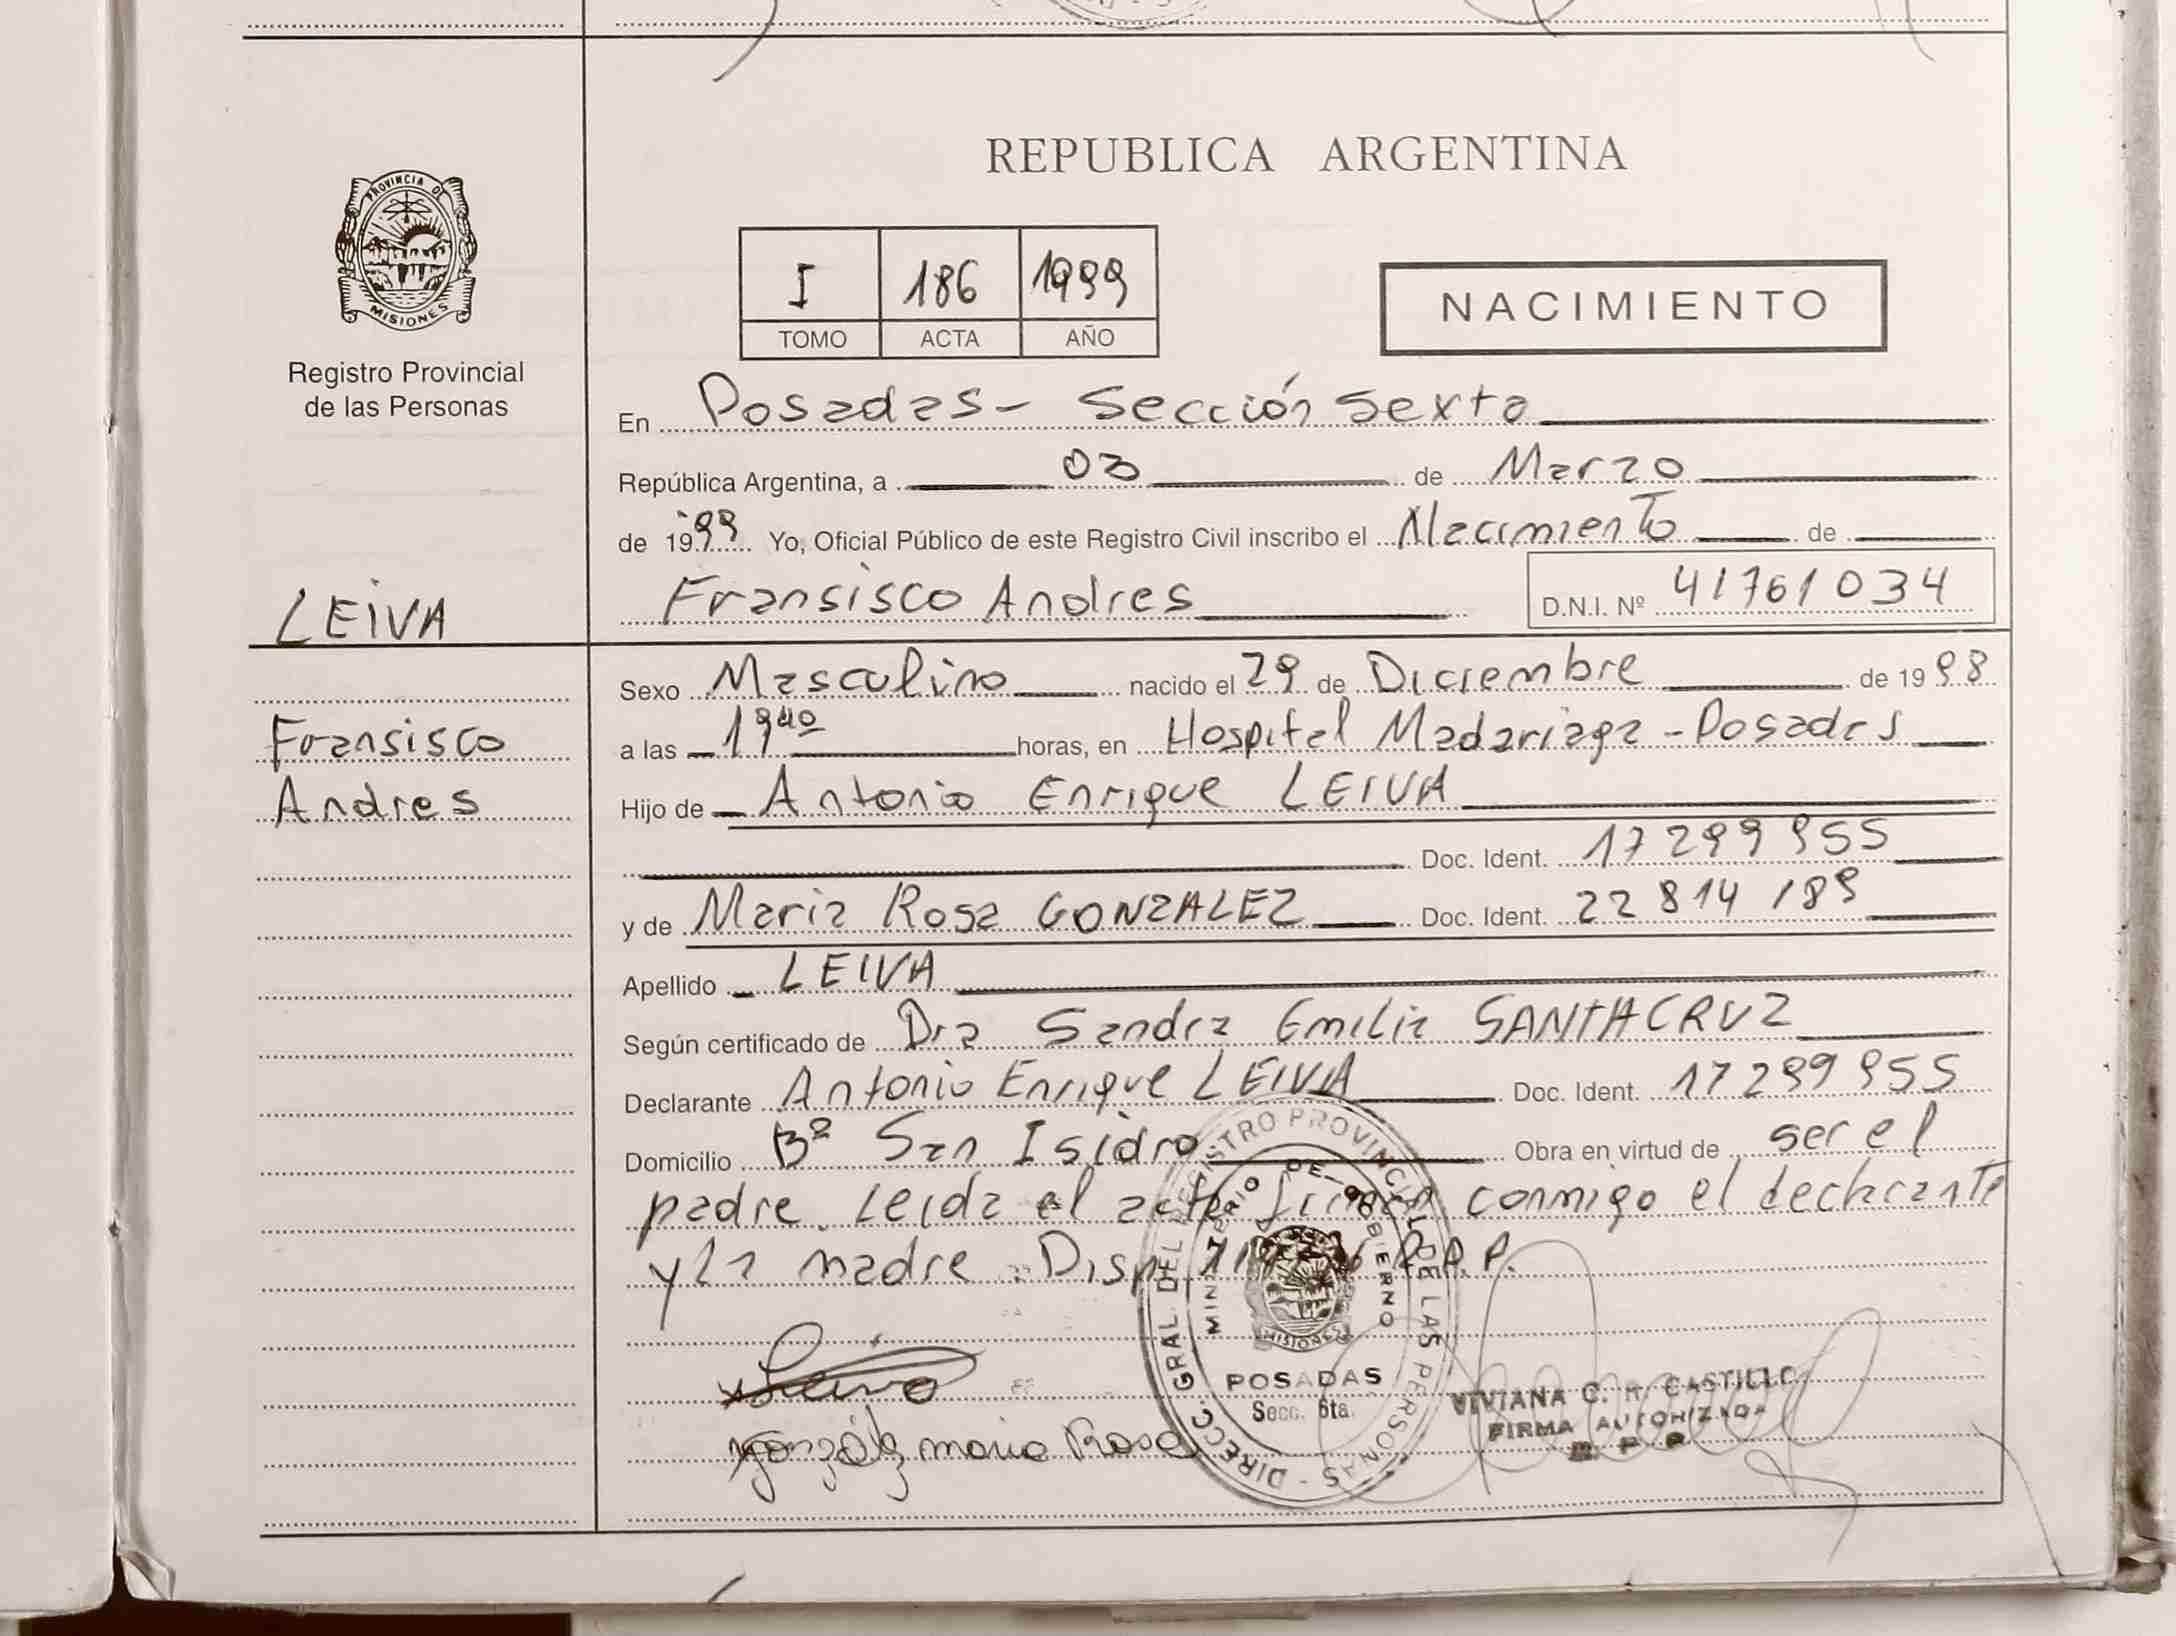 PROVINCIA D
MISIONES
Registro Provincial
de las Personas
REPUBLICA ARGENTINA
I 186 1999
TOMO ACTA AÑO
NACIMIENTO
En Posadas - Sección Sexta
República Argentina, a 03 de Marzo
de 1999 Yo, Oficial Público de este Registro Civil inscribo el Nacimiento de
LEIVA
Fransisco Andres D.N.I. Nº 41761034
Sexo Masculino nacido el 29 de Diciembre de 1998
Fransisco
a las 19 40 horas, en Hospital Madariaga - Posadas
Andres
Hijo de Antonio Enrique LEIVA
Doc. Ident. 17299955
y de Maria Rosa GONZALEZ Doc. Ident. 22814189
Apellido LEIVA
Según certificado de Dra Sandra Emilia SANTACRUZ
Declarante Antonio Enrique LEIVA Doc. Ident. 17299955
Domicilio Bº San Isidro Obra en virtud de ser el
padre. Leida el acta firman conmigo el declarante
y la madre. Disp. R.P.P.
DIRECC. GRAL. DEL REGISTRO PROVINCIAL DE LAS PERSONAS
MINISTERIO DE GOBIERNO
MISIONES
POSADAS
Secc. 6ta.
Leiva
González maria Rosa
VIVIANA C. CASTILLO
FIRMA AUTORIZADA